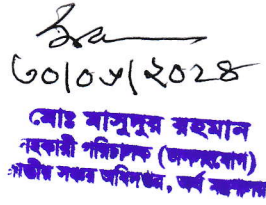 ৩০|০৬|২০২৪
মোঃ মাসুদুর রহমান
সহকারী পরিচালক (জনসংযোগ)
জাতীয় সঞ্চয় অধিদপ্তর, অর্থ মন্ত্রণালয়